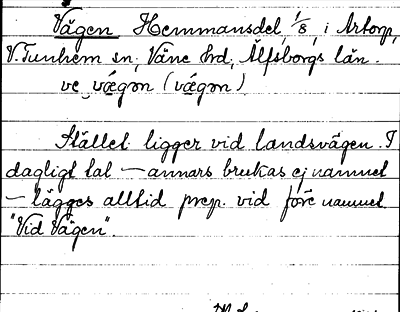 Vägen Hemmansdel, 1/8, i Artorp,
V. Tunhem sn, Väne hd, Älfsborgs län.
ve vǽgən (vǽgən)
Stället ligger vid landsvägen. I
dagligt tal — annars brukas ej namnet
— lägges alltid prep. vid före namnet
"Vid Vägen".